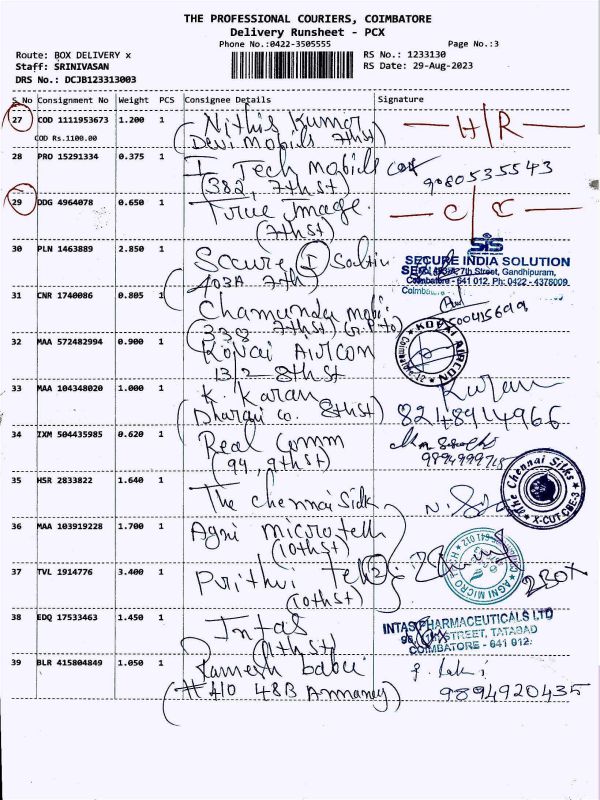 THE PROFESSIONAL COURIERS, COIMBATORE
Delivery Runsheet - PCX
Phone No.:0422-3505555 Page No.:3
Route: BOX DELIVERY x RS No.: 1233130
Staff: SRINIVASAN RS Date: 29-Aug-2023
DRS No.: DCJB123313003
S No Consignment No Weight PCS Consignee Details Signature
27 COD 1111953673 1.200 1 Nithis Kumar H/R
COD Rs.1100.00 (Devi mobils 7thst)
28 PRO 15291334 0.375 1 I Tech mobils
(382, 7thst) 9080535543
29 DDG 4964078 0.650 1 True Image. C/C
(7thst)
30 PLN 1463889 2.850 1 Secure I SIS
SECURE INDIA SOLUTION
403A 7th 7th Street, Gandhipuram,
Coimbatore - 641 012. Ph: 0422 - 4376009
31 CNR 1740086 0.805 1 Chamunda mobi
(338 7thst)
32 MAA 572482994 0.900 1 Kovai AIRCON KOVAI AIRCON
13/2 8thst
33 MAA 104348020 1.000 1 K. Karan Karan
(Dharani co. 8thst) 8248914966
34 IXM 504435985 0.620 1 Real Comm
(94, 9thst)
35 HSR 2833822 1.640 1 The chennai silk The Chennai Silks
X-CUT CBE-3
36 MAA 103919228 1.700 1 Agni microtell
(10thst) AGNI MICRO
37 TVL 1914776 3.400 1 Prithvi Tel 2 2 BOX
(10thst)
38 EDQ 17533463 1.450 1 Intas INTAS PHARMACEUTICALS LTD
STREET, TATABAD
COIMBATORE - 641 012.
39 BLR 415804849 1.050 1 Ramesh babu
(#410 48B Ammaney) 9894920435